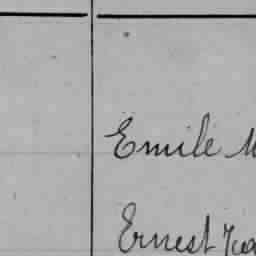 Emile
Ernest